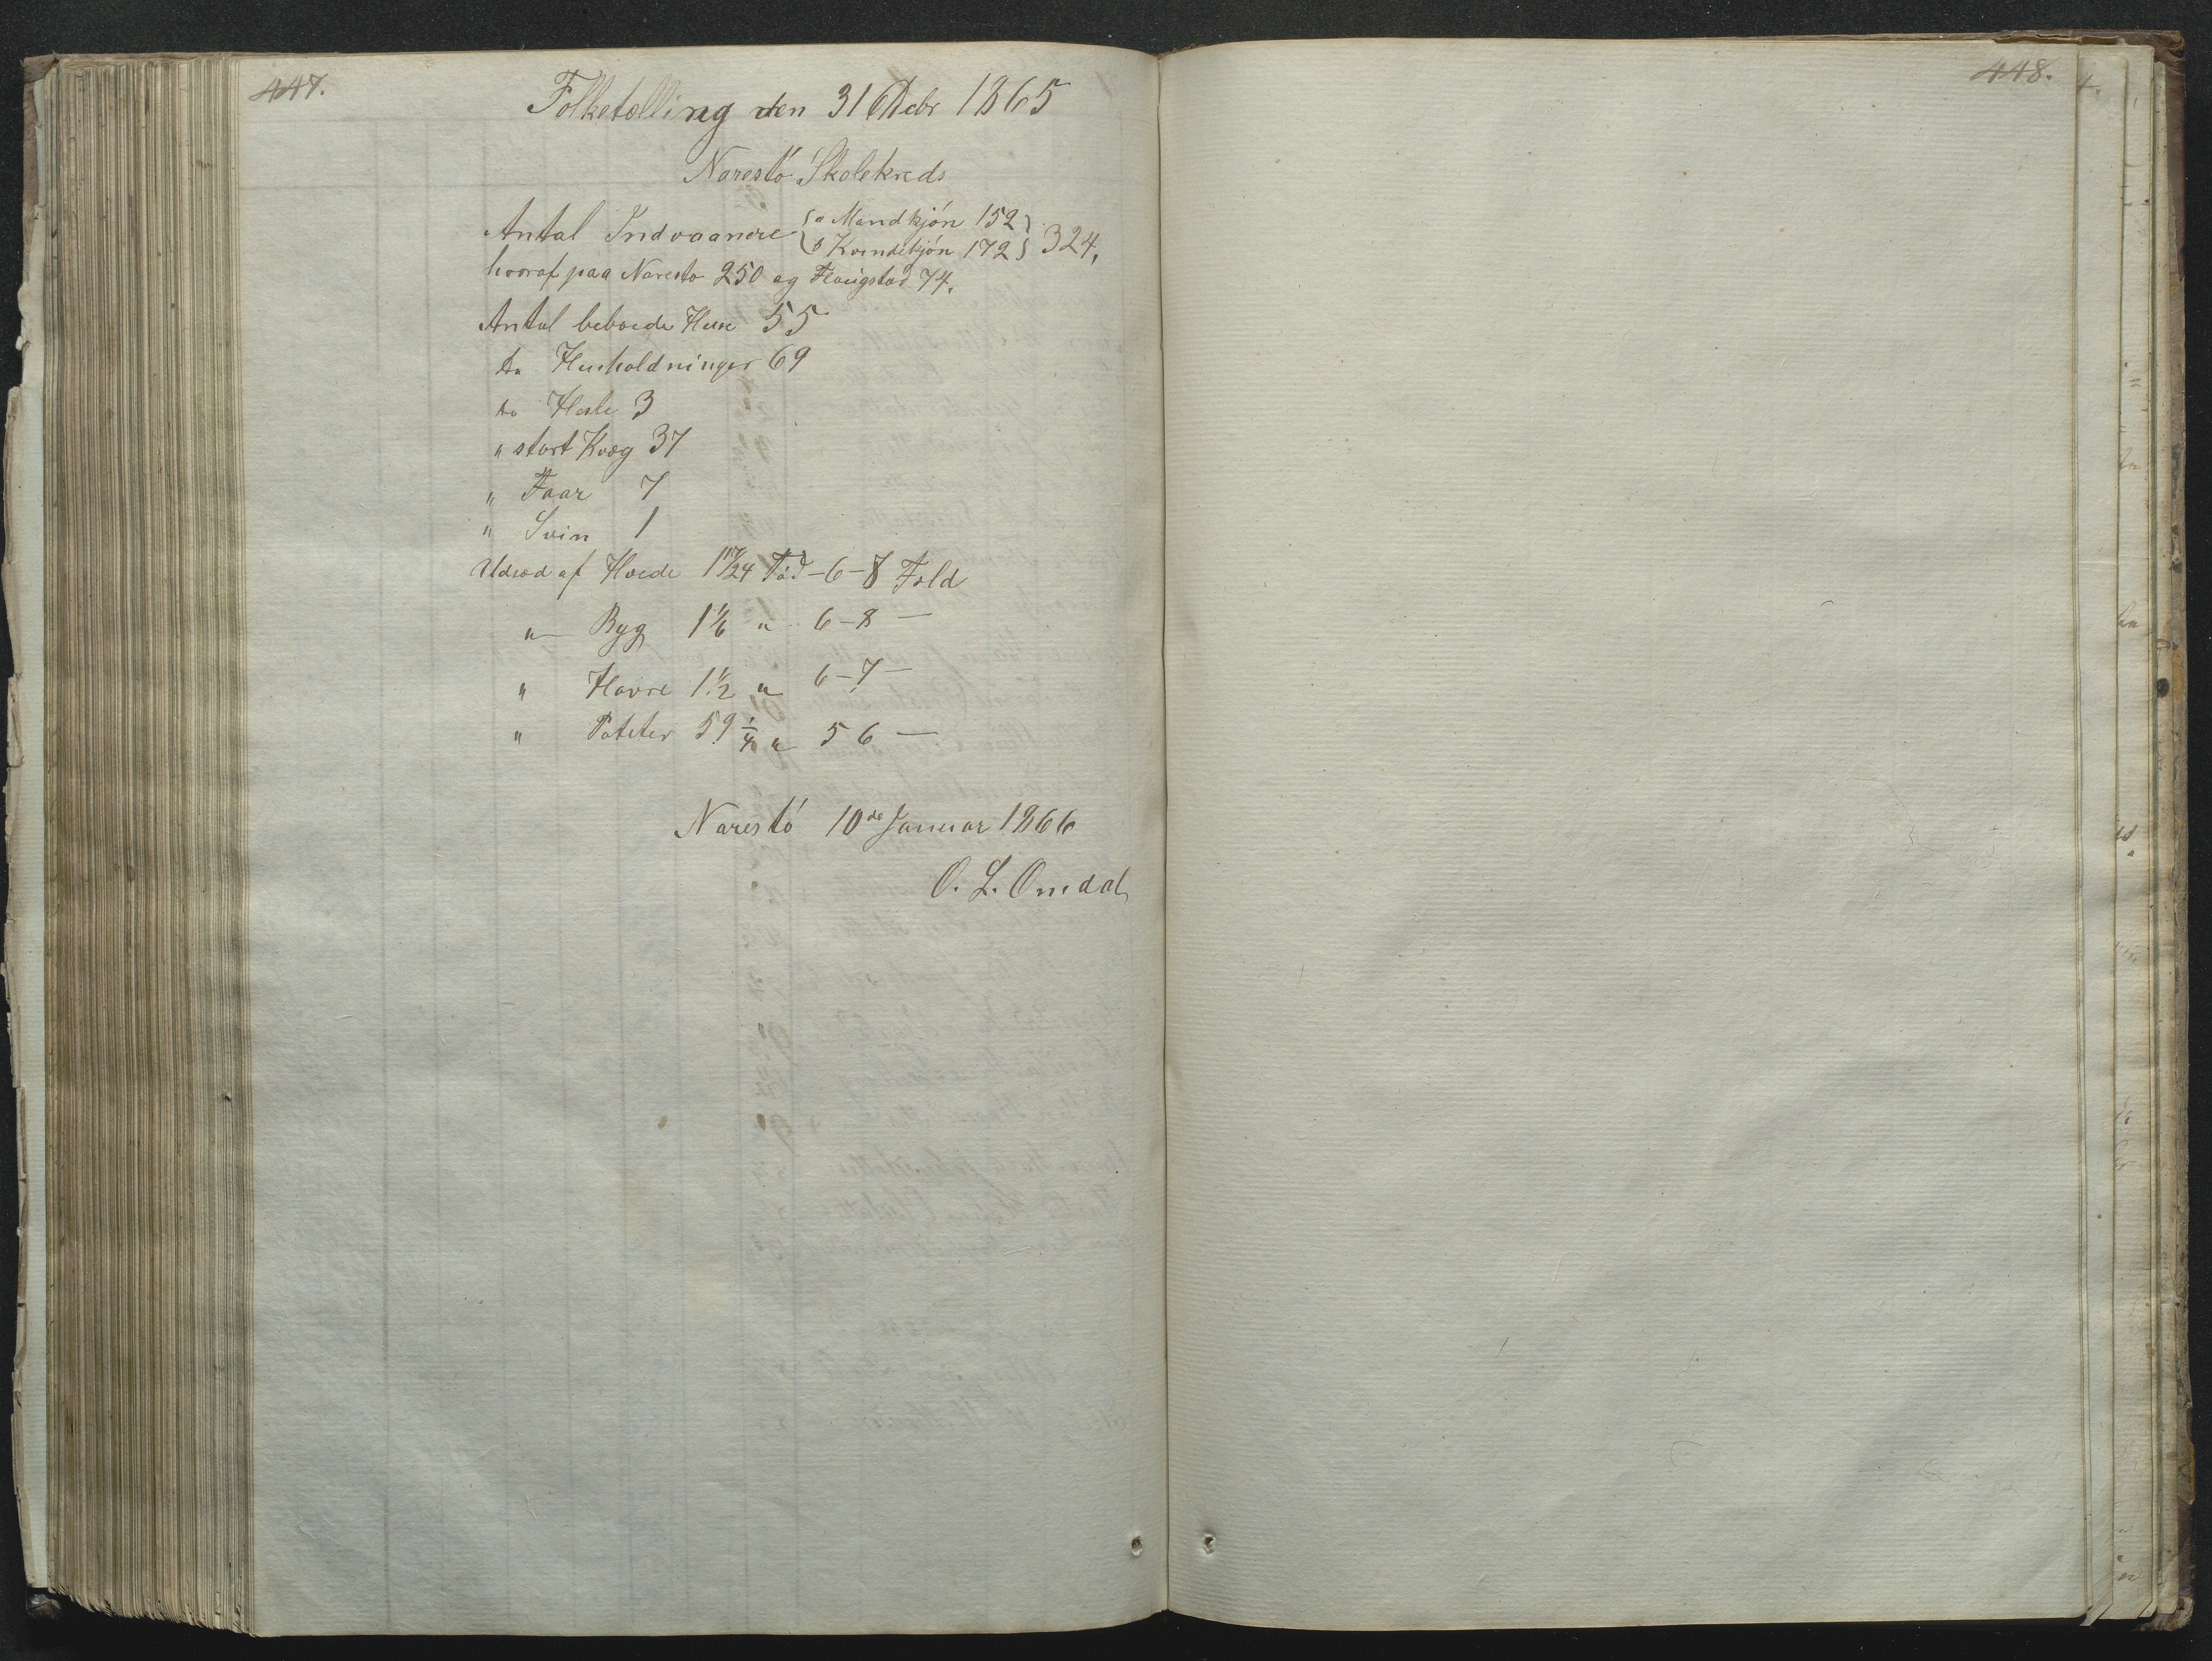 447.
Folketælling den 31 Decbr 1865
Narestö Skolekreds
Antal Indvaanere { a Mandkjón 152 } 324,
{ b Kvindekjón 172 }
hvoraf paa Naresto 250 og Haugstad 74.
Antal beboede Huse 55
do Husholdninger 69
do Heste 3
" stort Kvæg 37
" Faar 7
" Svin 1
Udsæd af Hvede 1 17/24 Tód - 6 - 8 Fold
" Byg 1 1/6 " 6 - 8 —
" Havre 1 1/2 " 6 - 7 —
" Poteter 59 1/4 " 5 6 —
Narestó 10de Januar 1866
O. L. Omdal
448.